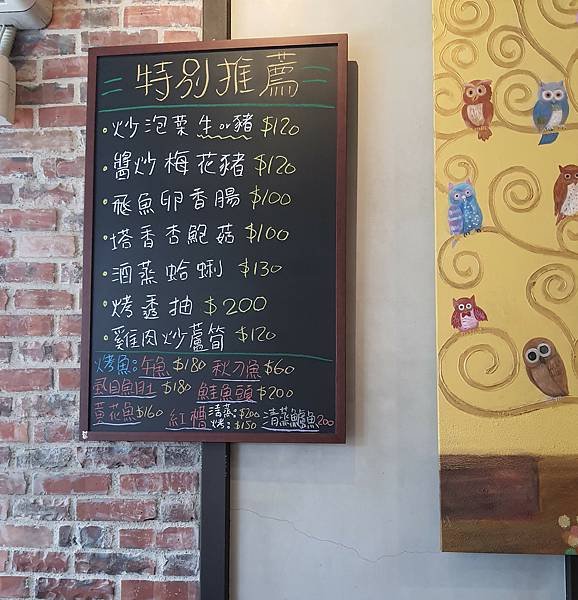 特別推薦
炒泡菜 牛or豬 $120
醬炒梅花豬 $120
飛魚卵香腸 $100
塔香杏鮑菇 $100
酒蒸蛤蜊 $130
烤透抽 $200
雞肉炒蘆筍 $120
烤魚:午魚 $180 秋刀魚 $60
虱目魚肚 $180 鮭魚頭 $200
黃花魚 $160 紅槽 清蒸:$200 烤:$150 清蒸鱸魚 200